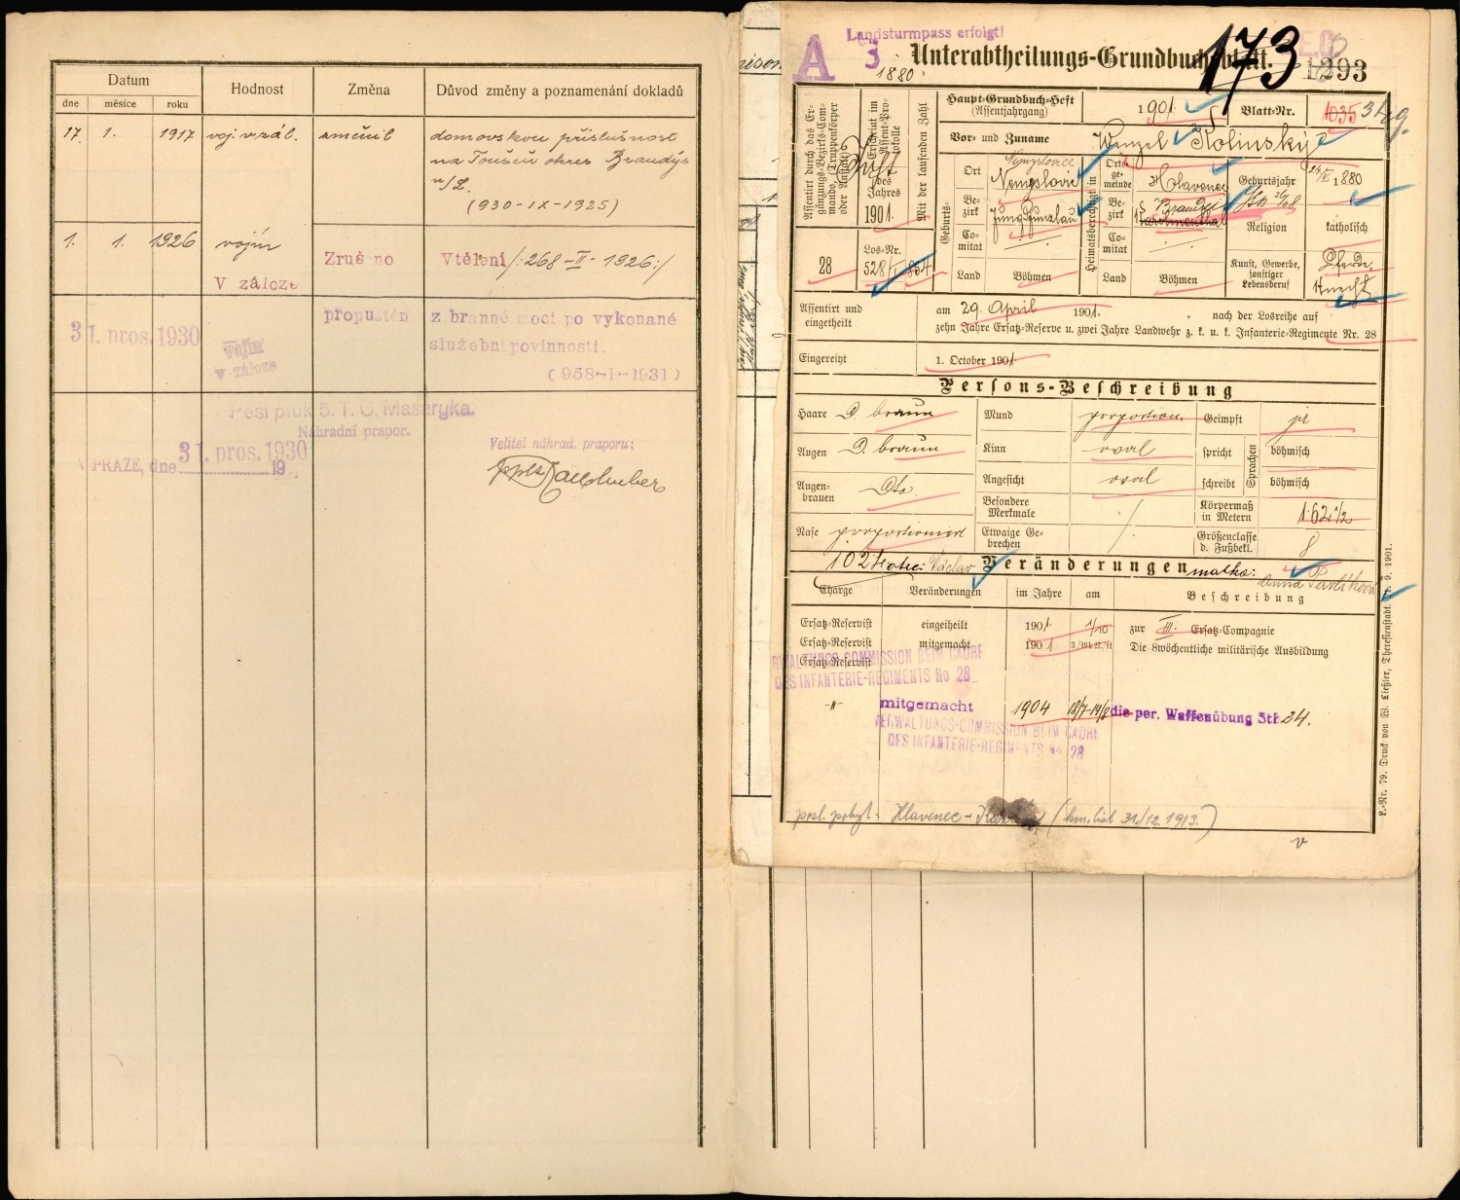 Datum
Hodnost
Změna
Důvod změny a poznamenání dokladů
dne
měsíce
roku
17. 1. 1917 voj. v zál. změnil domovskou příslušnost
na Toušeň okres Brandýs
n/L.
(930-IX-1925)
1. 1. 1926 vojín
V záloze
Zrušeno Vtělení /:268-II-1926:/
31. pros. 1930
vojín
v záloze
propuštěn z branné moci po vykonané
služební povinnosti.
(958-I-1931)
Pěší pluk 5. T. G. Masaryka.
Náhradní prapor.
V PRAZE, dne 31. pros. 1930
19
Velitel náhrad. praporu:
A
Landsturmpass erfolgt!
3
1880.
Unterabtheilungs-Grundbuchsblatt.
173
1293
Assentirt durch das Ergänzungs-Bezirks-Commando, (Truppenkörper oder Anstalt)
28
Erscheint im Assent-Protokolle
des Jahres
1901
Mit der laufenden Zahl
Los-Nr.
528
Haupt-Grundbuch-Heft
(Assentjahrgang)
1901.
Blatt-Nr.
1035
Vor- und Zuname
Wenzel Kolinský
Geburts-
Ort
Bezirk
Jung Bunzlau
Comitat
Land
Böhmen
Heimatsberechtigt in
Ortsgemeinde
Hlavenec
Bezirk
Brandeis
Karolinenthal
Comitat
Land
Böhmen
Geburtsjahr
1880
Religion
katholisch
Kunst, Gewerbe, sonstiger Lebensberuf
Pferdeknecht
Assentirt und eingetheilt
am 29. April 1901. nach der Losreihe auf
zehn Jahre Ersatz-Reserve u. zwei Jahre Landwehr z. k. u. k. Infanterie-Regimente Nr. 28
Eingereiht
1. October 1901
Persons-Beschreibung
Haare D braun
Mund proportion.
Geimpft ja
Augen D. braun
Kinn oval
Sprachen
spricht böhmisch
Augenbrauen Dto.
Angesicht oval
schreibt böhmisch
Besondere Merkmale
Körpermaß in Metern 1·62 1/2
Nase proportionirt
Etwaige Gebrechen
Größenclasse d. Fußbekl. 8
102 Otec: Václav
Veränderungen
matka: Anna
Charge
Veränderungen
im Jahre
am
Beschreibung
Ersatz-Reservist eingetheilt 1901. 1/10 zur III. Ersatz-Compagnie
Ersatz-Reservist mitgemacht 1901 Die 8wöchentliche militärische Ausbildung
Ersatz-Reservist
VERWALTUNGS-COMMISSION BEIM CADRE
DES INFANTERIE-REGIMENTS No 28
-"- mitgemacht 1904 18/7-14/8 die per. Waffenübung Str. 34.
VERWALTUNGS-COMMISSION BEIM CADRE
DES INFANTERIE-REGIMENTS No 28
posl. pobyt: Hlavenec - (km. list 31/12 1913.)
L.-Nr. 79. Druck von W. Ließler, Theresienstadt. 9. 1901.